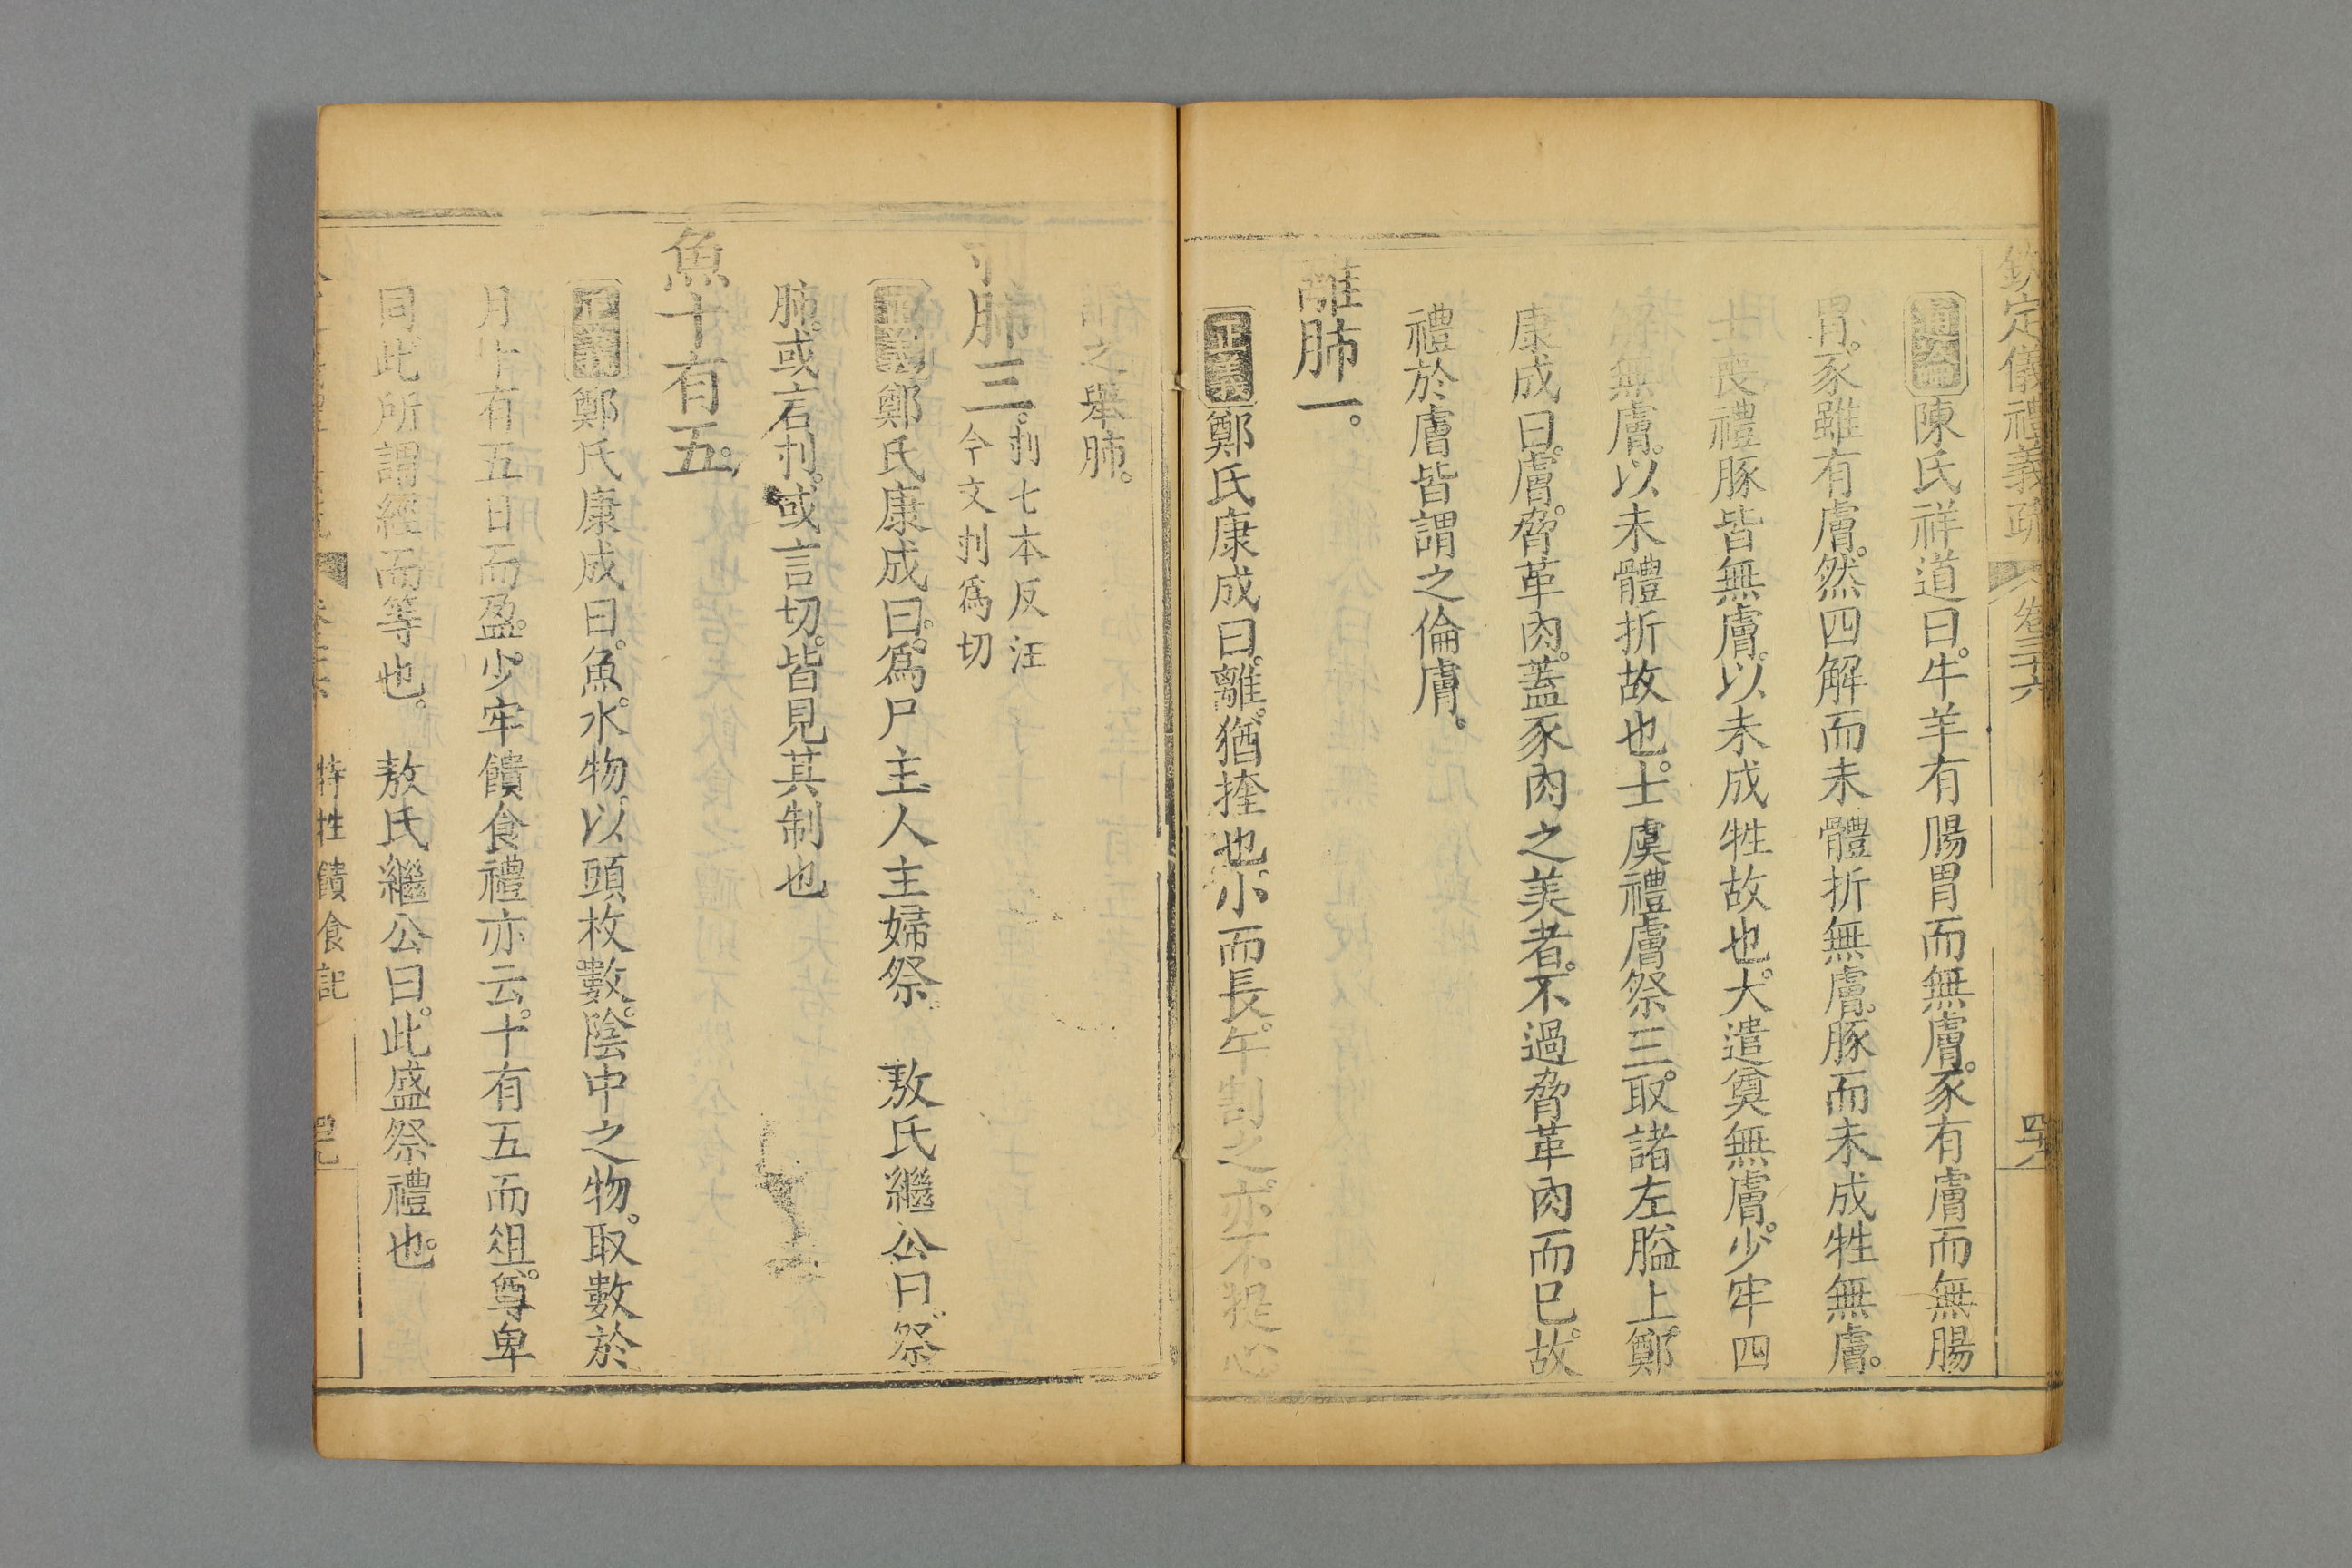 欽定儀禮義疏 卷三十六 四十八
通論陳氏祥道曰。牛羊有腸胃而無膚。豕有膚而無腸
胃。豕雖有膚。然四解而未體折無膚。豚而未成牲無膚。
士喪禮豚皆無膚。以未成牲故也。大遣奠無膚。少牢四
解無膚。以未體折故也。士虞禮膚祭三。取諸左膉上。鄭
康成曰。膚。脅革肉。蓋豕肉之美者。不過脅革肉而已。故
禮於膚皆謂之倫膚。
離肺一。
正義鄭氏康成曰。離。猶㧢也。小而長。午割之。亦不提心
謂之舉肺。
刌肺三。刌七本反注
今文刌爲切
正義鄭氏康成曰。爲尸主人主婦祭 敖氏繼公曰。祭
肺。或言刌。或言切。皆見其制也
魚十有五。
正義鄭氏康成曰。魚。水物。以頭枚數。陰中之物。取數於
月十有五日而盈。少牢饋食禮亦云。十有五而俎。尊卑
同此所謂經而等也。 敖氏繼公曰。此盛祭禮也。
特牲饋食記